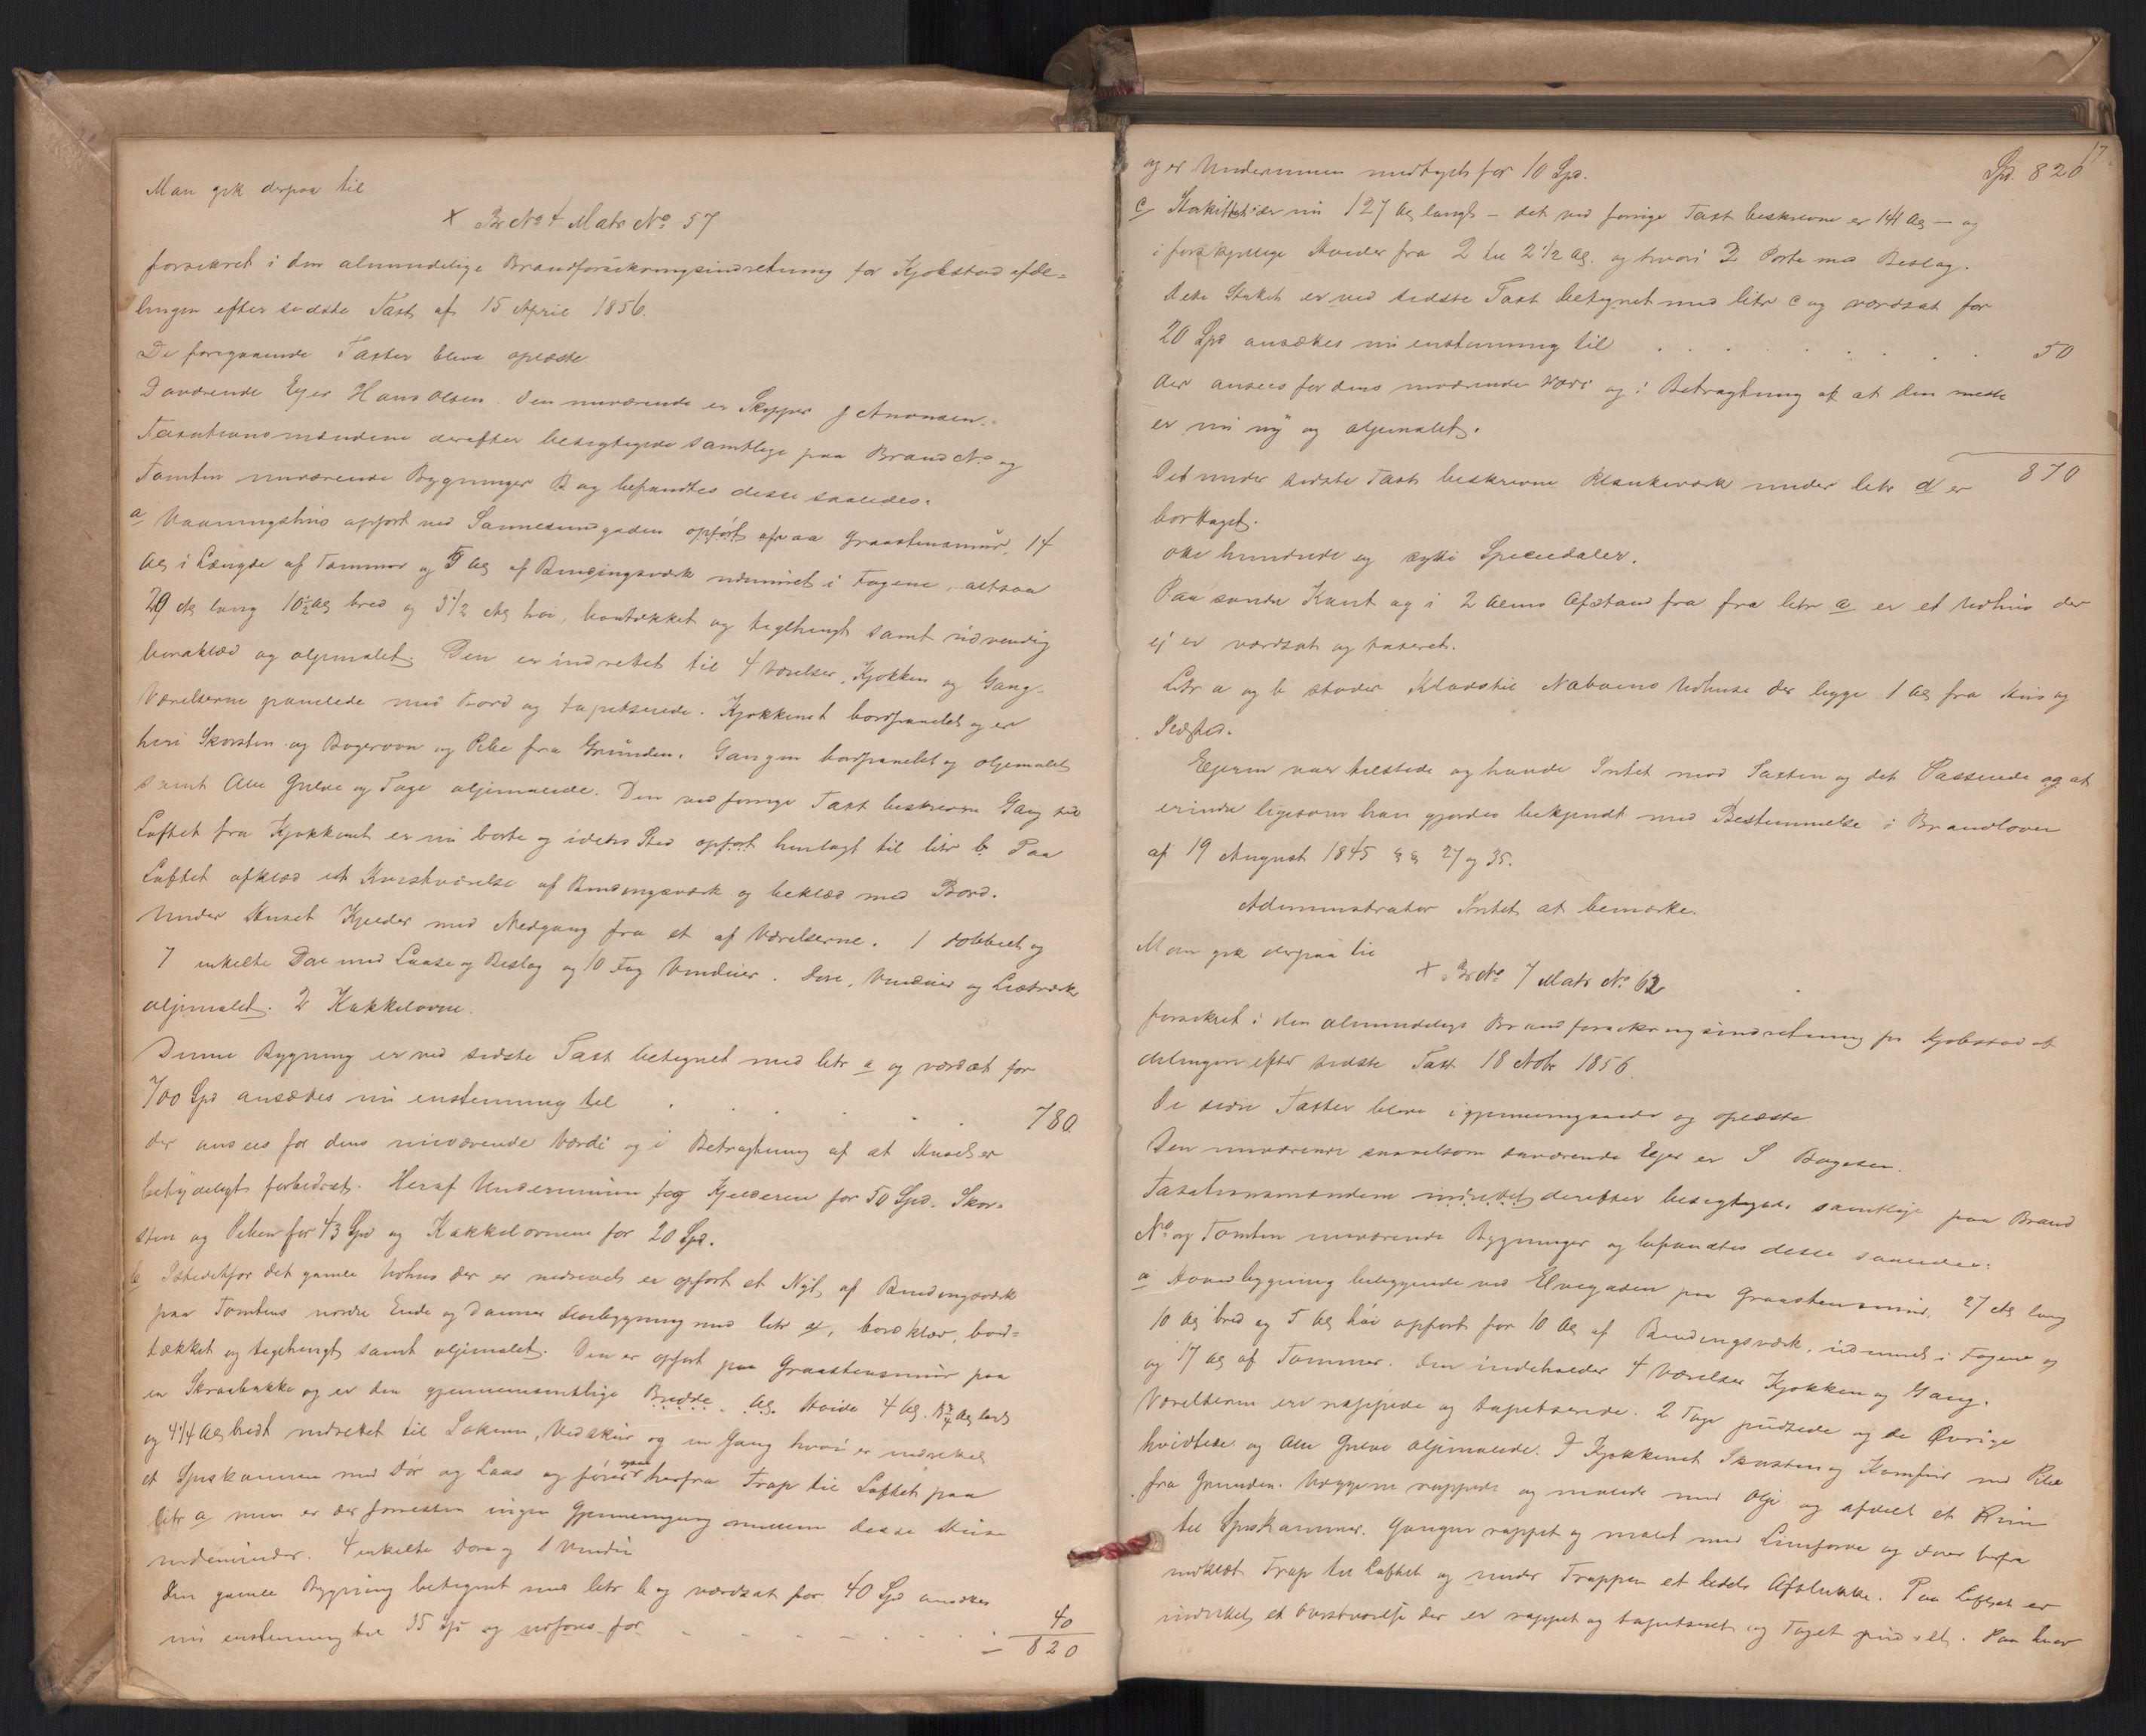 Man gik derpaa til
x Br No 4 Matr No 57
forsikret i den almindelige Brandforsikringsindretning for Kjøbstad afde=
lingen efter sidste Taxt af 15 April 1856.
De foregaaende Taxter bleve oplæste
Daværende Ejer Hans Olsen. Den nuværende er Skipper J Anonsen.
Taxationsmændene derefter besigtigede samtlige paa Brand No og
Tomten nuværende Bygninger og befandtes disse saaledes:
a Vaaningshus opført ved Sannesundgaden opført paa Graastensmur, 14
Al i Længde af Tømmer og Al af Bindingsværk udmuret i Fagene, altsaa
10½ Al bred og 5 1/2 Al høi, bordtækket og teglhengt samt udvendig
bordklæd og oljemalet. Den er indrettet til 4 Værelser, Kjøkken og Gang.
Værelserne panelede med Bord og tapetserede. Kjøkkenet bordpanelet og er
heri Skorsten og Bagerovn og Pibe fra Grunden. Gangen bordpanelet og oljemalet
samt Alle Gulve og Tage oljemalede. Den ved forrige Taxt beskrevne Gang til
Loftet fra Kjøkkenet er nu borte og i dets Sted opført henlagt til litr b. Paa
Loftet afklæd et Kvistværelse af Bindingsværk og beklæd med Bord.
Under Huset Kjelder med Nedgang fra et af Værelserne. 1 dobbelt og
7 enkelte Døre med Laase og Beslag og 10 Fag Vinduer. Døre, Vinduer og Listværk
oljemalet. 2 Kakkelovne.
Denne Bygning er ved sidste Taxt betegnet med litr a og værdsat for
700 Spd ansættes nu enstemmig til . . . . 780
der ansees for dens nuværende Værdi og i Betragtning af at Huset er
betydeligt forbedret. Heraf Undermuren og Kjelderen for 50 Spd. Skor-
sten og Piben for 43 Spd og Kakkelovnene for 20 Spd.
b Istedetfor det gamle Udhus der er nedrevet er opført et Nyt af Bindingsværk
paa Tomtens nordre Ende og danner Sidebygning med litr a, bordklæd, bord=
tækket og teglhengt samt oljemalet. Den er opført paa Graastensmur paa
en Skraabakke og er den gjennemsnitlige Bredde Al. Høide 4 Al. Al lang
og 4 1/4 Al bredt indrettet til Lokum, Vedskur og en Gang hvori er indrettet
et Spiskammer med Dør og Laas og fører herfra Trap til Loftet paa
litr a men er der forresten ingen Gjennemgang mellem disse Huse
indeninder. 4 enkelte Døre og 1 Vindu
Den gamle Bygning betegnet med litr b og værdsat for 40 Spd ansættes
nu enstemmig til 35 Spd og udføres for . . . . . . 40
820
17
og er Undermuren medtaget for 10 Spd. Spd. 820
c Stakittet er nu 127 Al langt – det ved forrige Taxt beskrevne er 141 Al – og
i forskjellige Høider fra 2 til 2 1/2 Al. og hvori 2 Porte med Beslag.
Dette Staket er ved sidste Taxt betegnet med litr c og værdsat for
20 Spd ansættes nu enstemmig til . . . . . . . 50
der ansees for dens nuværende Værdi og i Betragtning af at den meste
er nu ny og oljemalet.
870
Det under sidste Taxt beskrevne Plankeværk under litr d er
borttaget.
otte hundrede og sytti Speciedaler.
Paa søndre Kant og i 2 Alens Afstand fra fra litr a er et Udhus der
ej er værdsat og taxeret.
Litr a og b støder Klods til Naboens Udhuse der ligge 1 Al fra Hus og
Ildsted.
Ejeren var tilstede og havde Intet mod Taxten og det Passerede og at
erindre ligesom han gjordes bekjendt med Bestemmelse i Brandloven
af 19 August 1845 §§ 27 og 35.
Administrator Intet at bemærke.
Man gik derpaa til
x Br No 7 Matr No 62
forsikret i den almindelige Brandforsikringsindretning for Kjøbstad af
delingen efter sidste Taxt 18 Nobr 1856.
De ældre Taxter bleve igjennemgaaede og oplæste
Den nuværende saavelsom daværende Ejer er S Bøgesen.
Taxationsmændene indrettet derefter besigtigede samtlige paa Brand
No og Tomten nuværende Bygninger og befandtes disse saaledes:
a Hovedbygning beliggende ved Elvegaden paa Graastensmur, 27 Al lang
10 Al bred og 5 Al høi opført for 10 Al af Bindingsværk, udmuret i Fagene og
og 17 Al af Tømmer. Den indeholder 4 Værelser Kjøkken og Gang.
Værelserne ere rappede og tapetserede. 2 Tage pudsede og de Øvrige
hvidtede og Alle Gulve oljemalede. I Kjøkkenet Skorsten og Komfur med Pibe
fra Grunden. Væggene rappede og malede med Olje og afdelt et Rum
til Spiskammer. Gangen rappet og malet med Limfarve og fører herfra
indklædt Trap til Loftet og under Trappen et lidet Aflukke. Paa Loftet er
indrettet et Kvistværelse der er rappet og tapetseret og Taget pudset. Paa hver